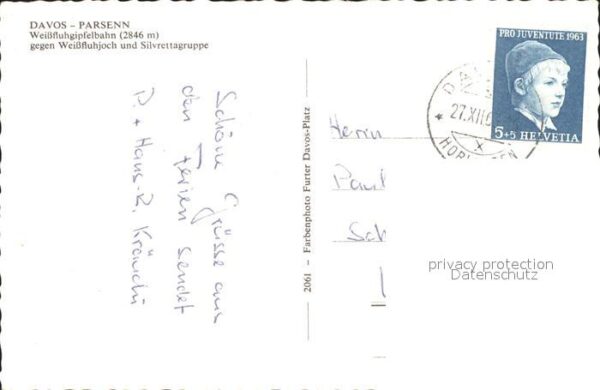 DAVOS – PARSENN
Weißfluhgipfelbahn (2846 m)
gegen Weißfluhjoch und Silvrettagruppe
Schöne Grüsse aus
den Ferien sendet
+ Hans-R.
2061 – Farbenphoto Furter Davos-Platz
PRO JUVENTUTE 1963
5+5 HELVETIA
27.XII
Herrn
Paul
Sch
privacy protection
Datenschutz